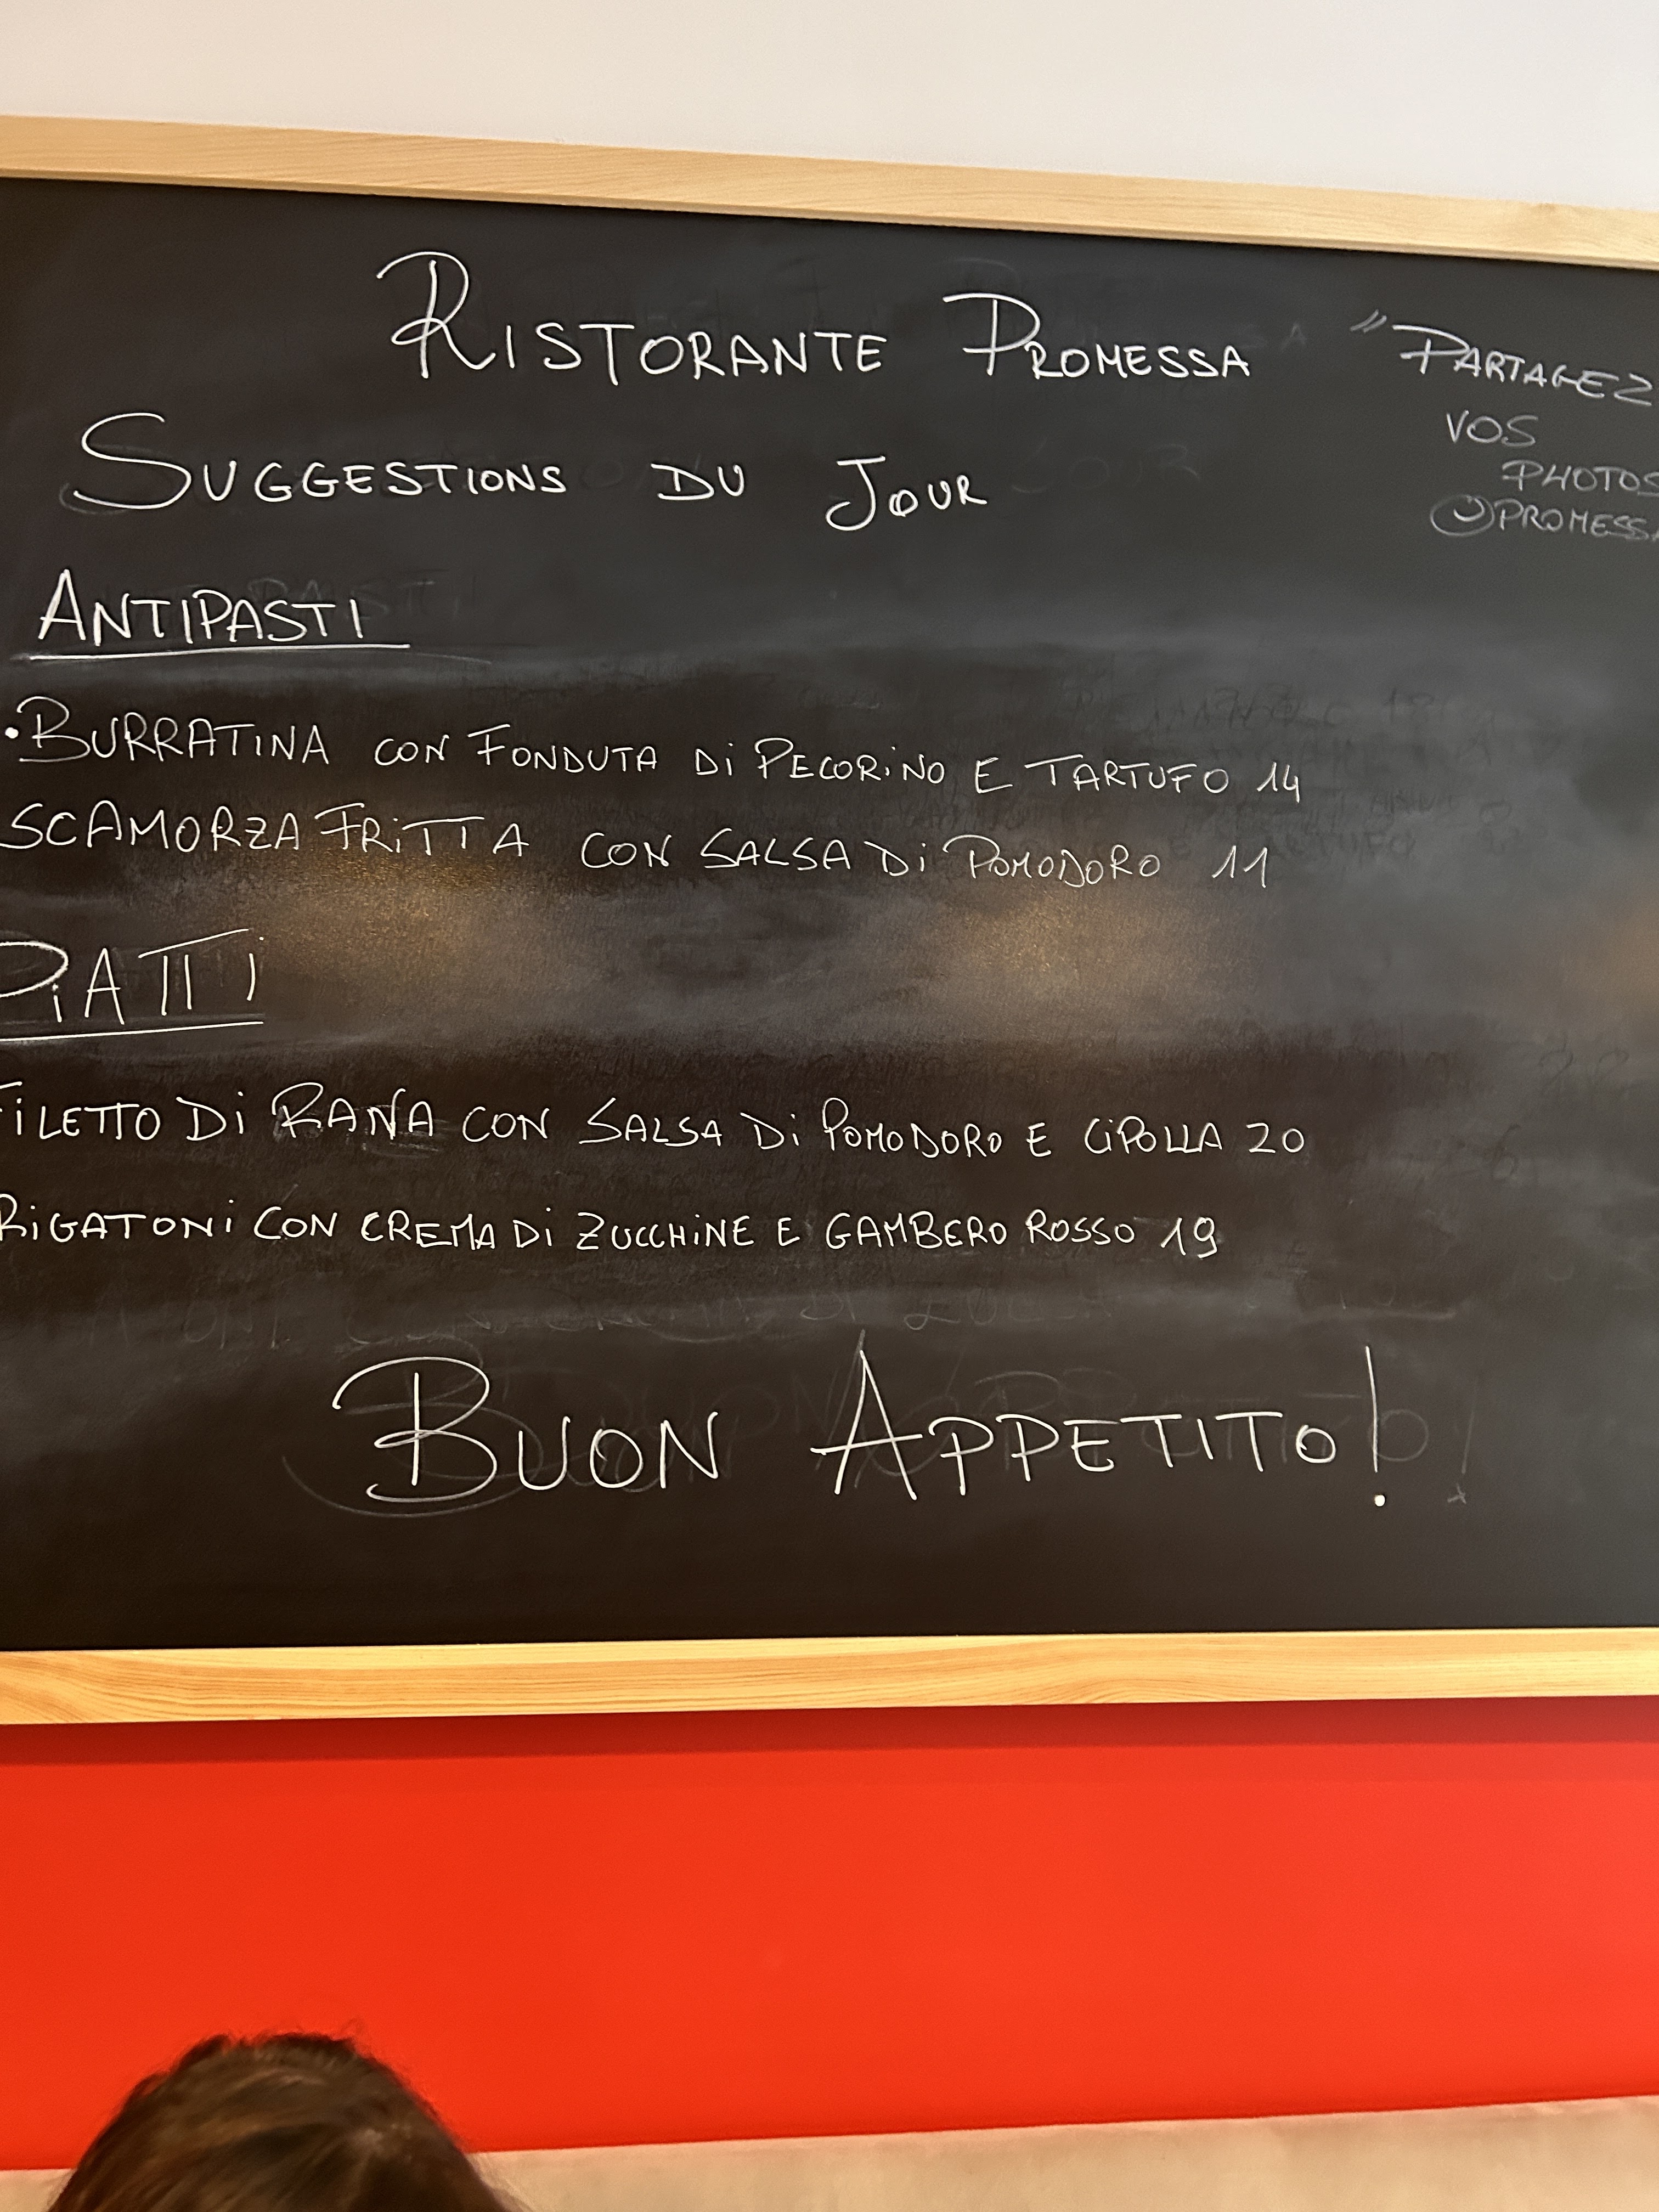 RISTORANTE PROMESSA
SUGGESTIONS DU JOUR
"PARTAGEZ
VOS
PHOTOS
@PROMESSA
ANTIPASTI
• BURRATINA CON FONDUTA Di PECORiNO E TARTUFO 14
SCAMORZA FRiTTA CON SALSA Di POMODORO 11
PiATTi
FiLETTO Di RANA CON SALSA Di POMODORO E CiPOLLA 20
RiGATONi CON CREMA Di ZUCCHiNE E GAMBERO ROSSO 19
BUON APPETITO!